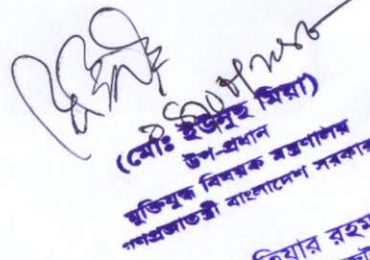 (মোঃ ইউসুফ মিয়া)
উপ-প্রধান
মুক্তিযুদ্ধ বিষয়ক মন্ত্রণালয়
গণপ্রজাতন্ত্রী বাংলাদেশ সরকার
রহম